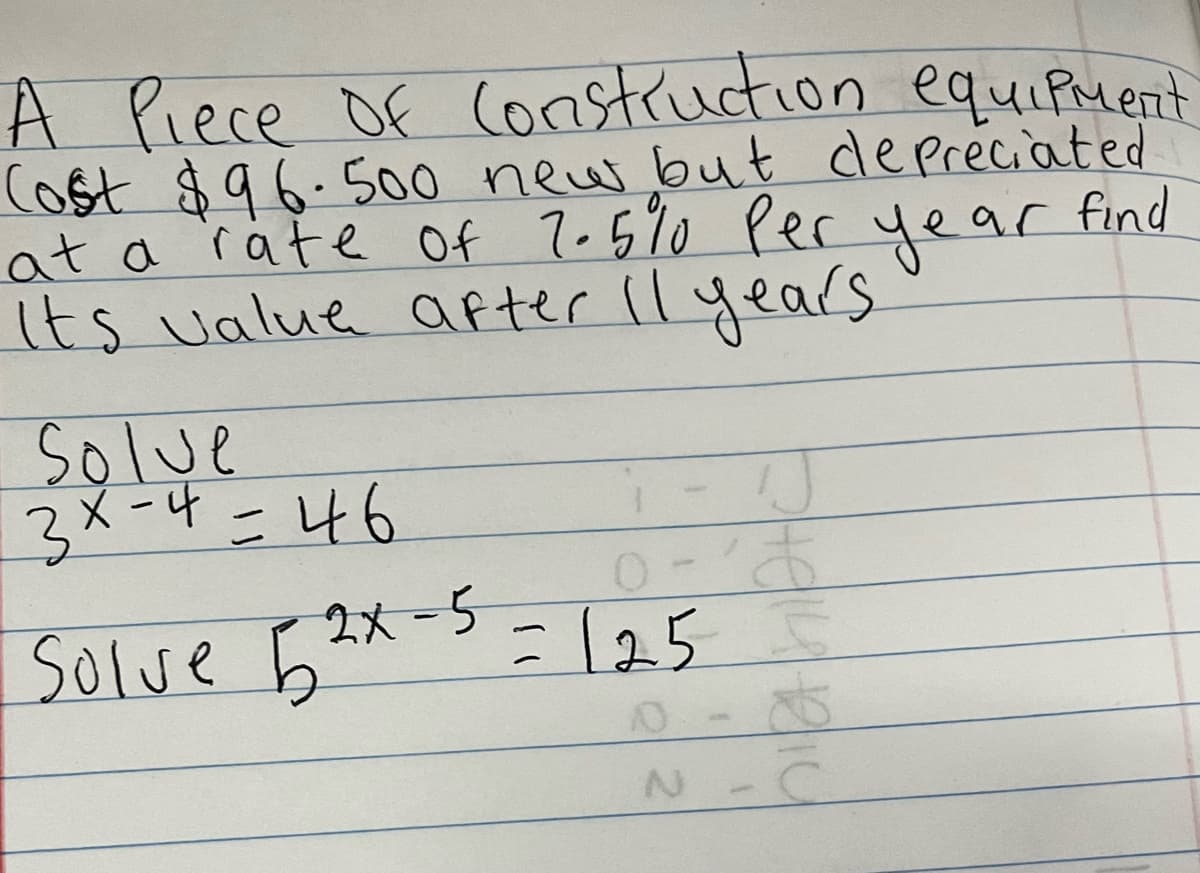 A Piece Of Construction equipment
Cost $96.500 new but depreciated
at a rate of 7.5% Per year find
Its value after 11 years
Solve
3^x-4 = 46
Solve 5^2x-5 = 125